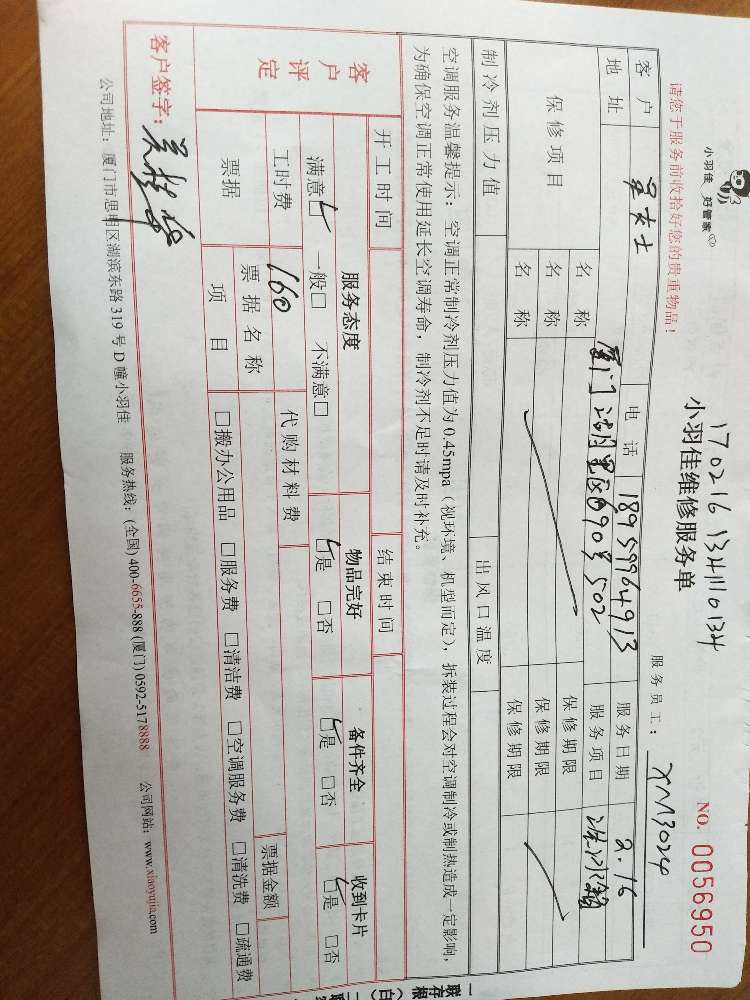 小羽佳 好管家
170216 1341110134
小羽佳维修服务单
NO. 0056950
请您于服务前收拾好您的贵重物品！
服务员工： XM13024
客户 吴女士 电话 18959964913 服务日期 2.16
地址 服务项目
保修项目 名称 保修期限
名称 保修期限
名称 保修期限
制冷剂压力值 出风口温度
空调服务温馨提示：空调正常制冷剂压力值为0.45mpa（视环境、机型而定），拆装过程会对空调制冷或制热造成一定影响，
为确保空调正常使用延长空调寿命，制冷剂不足时请及时补充。
开工时间 结束时间
客户评定 服务态度 物品完好 备件齐全 收到卡片
满意□ 一般□ 不满意□ □是 □否 □是 □否 □是 □否
工时费 160 代购材料费
票据 票据名称 票据金额
项目 □搬办公用品 □服务费 □清洁费 □空调服务费 □清洗费 □疏通费
客户签字：
公司地址：厦门市思明区湖滨东路319号D幢小羽佳 服务热线：(全国)400-6655-888 (厦门)0592-5178888 公司网站：www.xiaoyujia.com